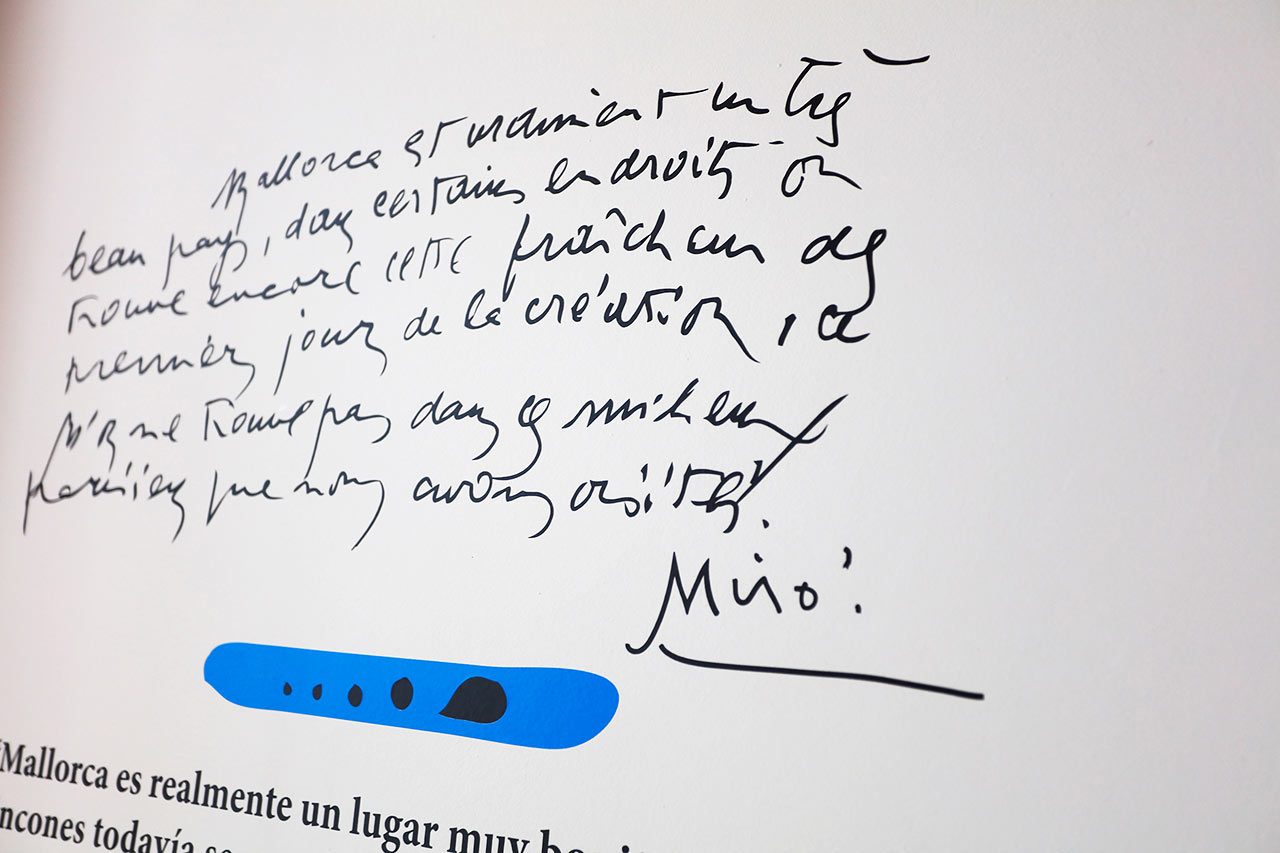 Mallorca est vraiment un très
beau pays, dans certains endroits on
trouve encore cette fraîcheur des
premiers jours de la création, ce
qui ne trouve pas dans ces milieux
parisiens que nous avons visités.
Miró.
“Mallorca es realmente un lugar muy
incones todavía se